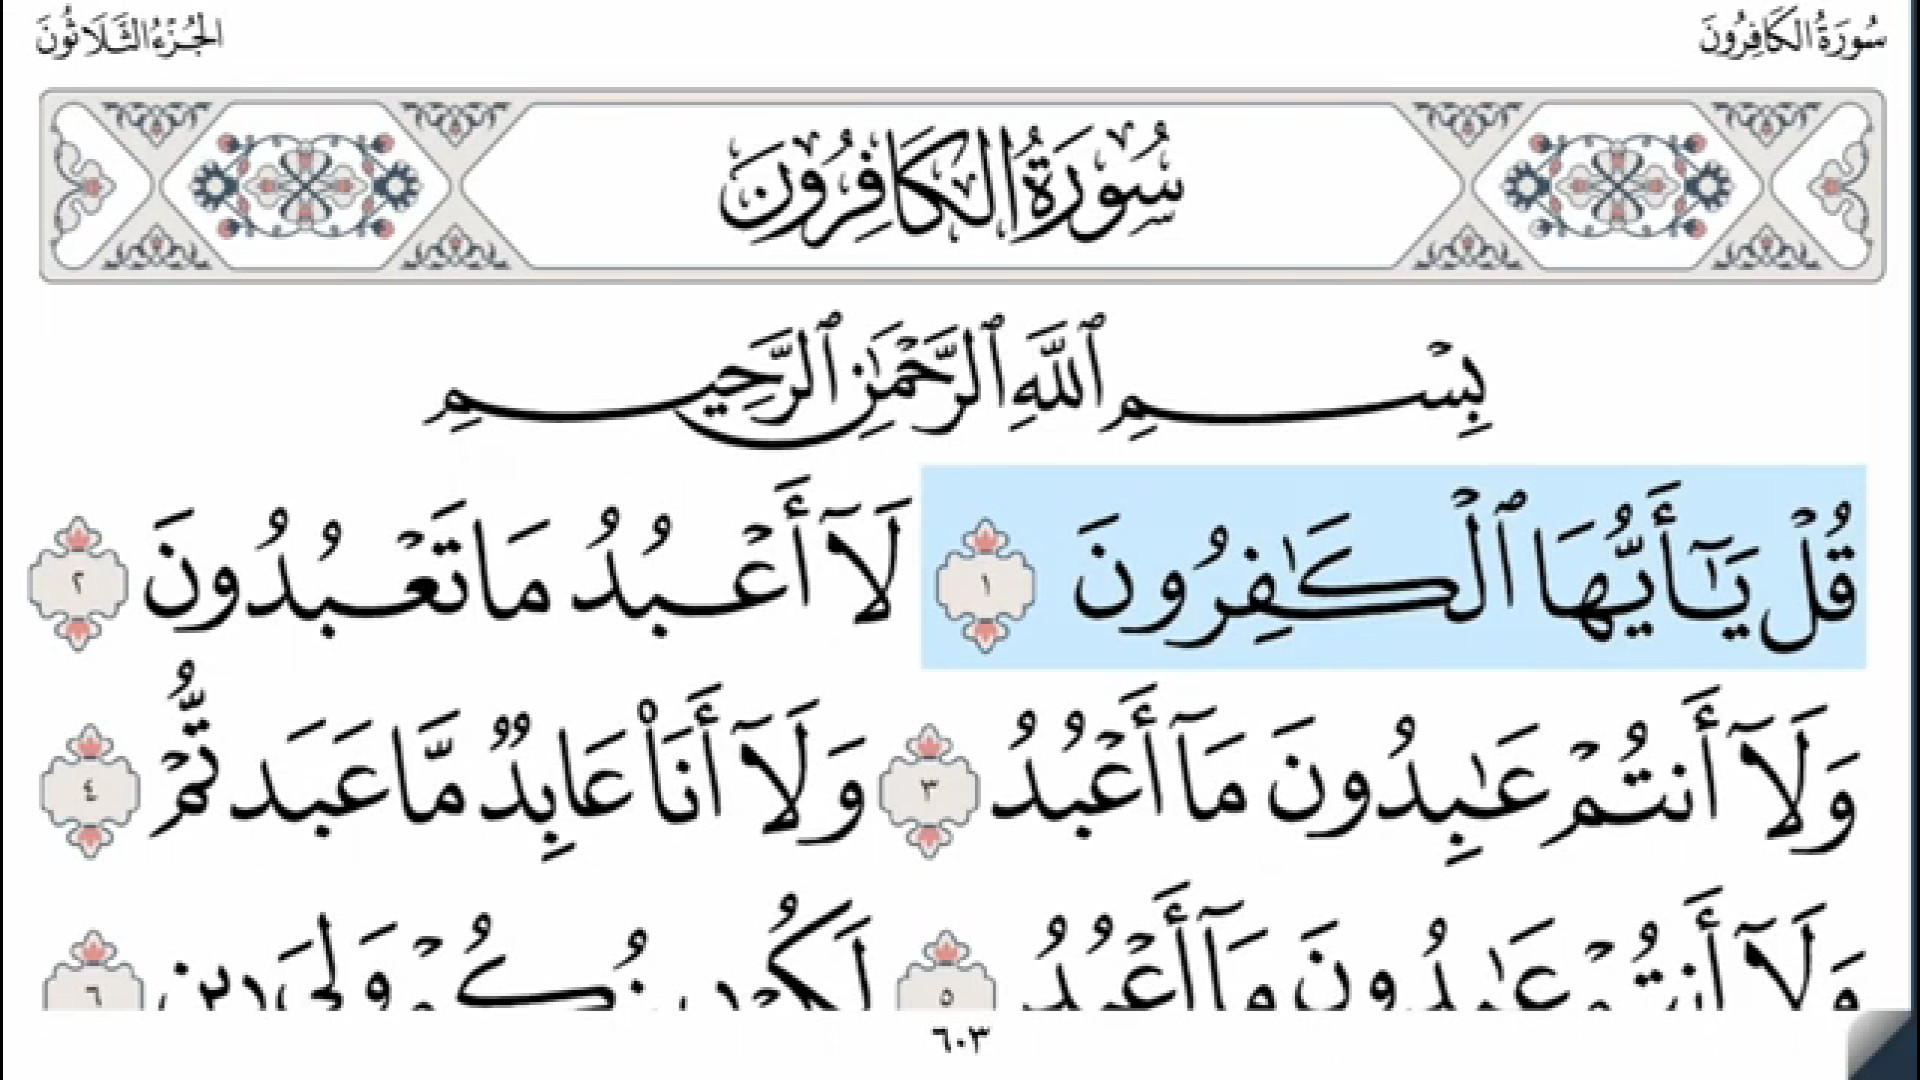 سُورَةُ الكَافِرُونَ
الجُزْءُ الثَّلَاثُونَ
سُورَةُ الكَافِرُونَ
بِسْمِ ٱللَّهِ ٱلرَّحْمَٰنِ ٱلرَّحِيمِ
قُلْ يَٰٓأَيُّهَا ٱلْكَٰفِرُونَ ١ لَآ أَعْبُدُ مَا تَعْبُدُونَ ٢
وَلَآ أَنتُمْ عَٰبِدُونَ مَآ أَعْبُدُ ٣ وَلَآ أَنَا۠ عَابِدٌ مَّا عَبَدتُّمْ ٤
وَلَآ أَنتُمْ عَٰبِدُونَ مَآ أَعْبُدُ ٥ لَكُمْ دِينُكُمْ وَلِىَ دِينِ ٦
٦٠٣